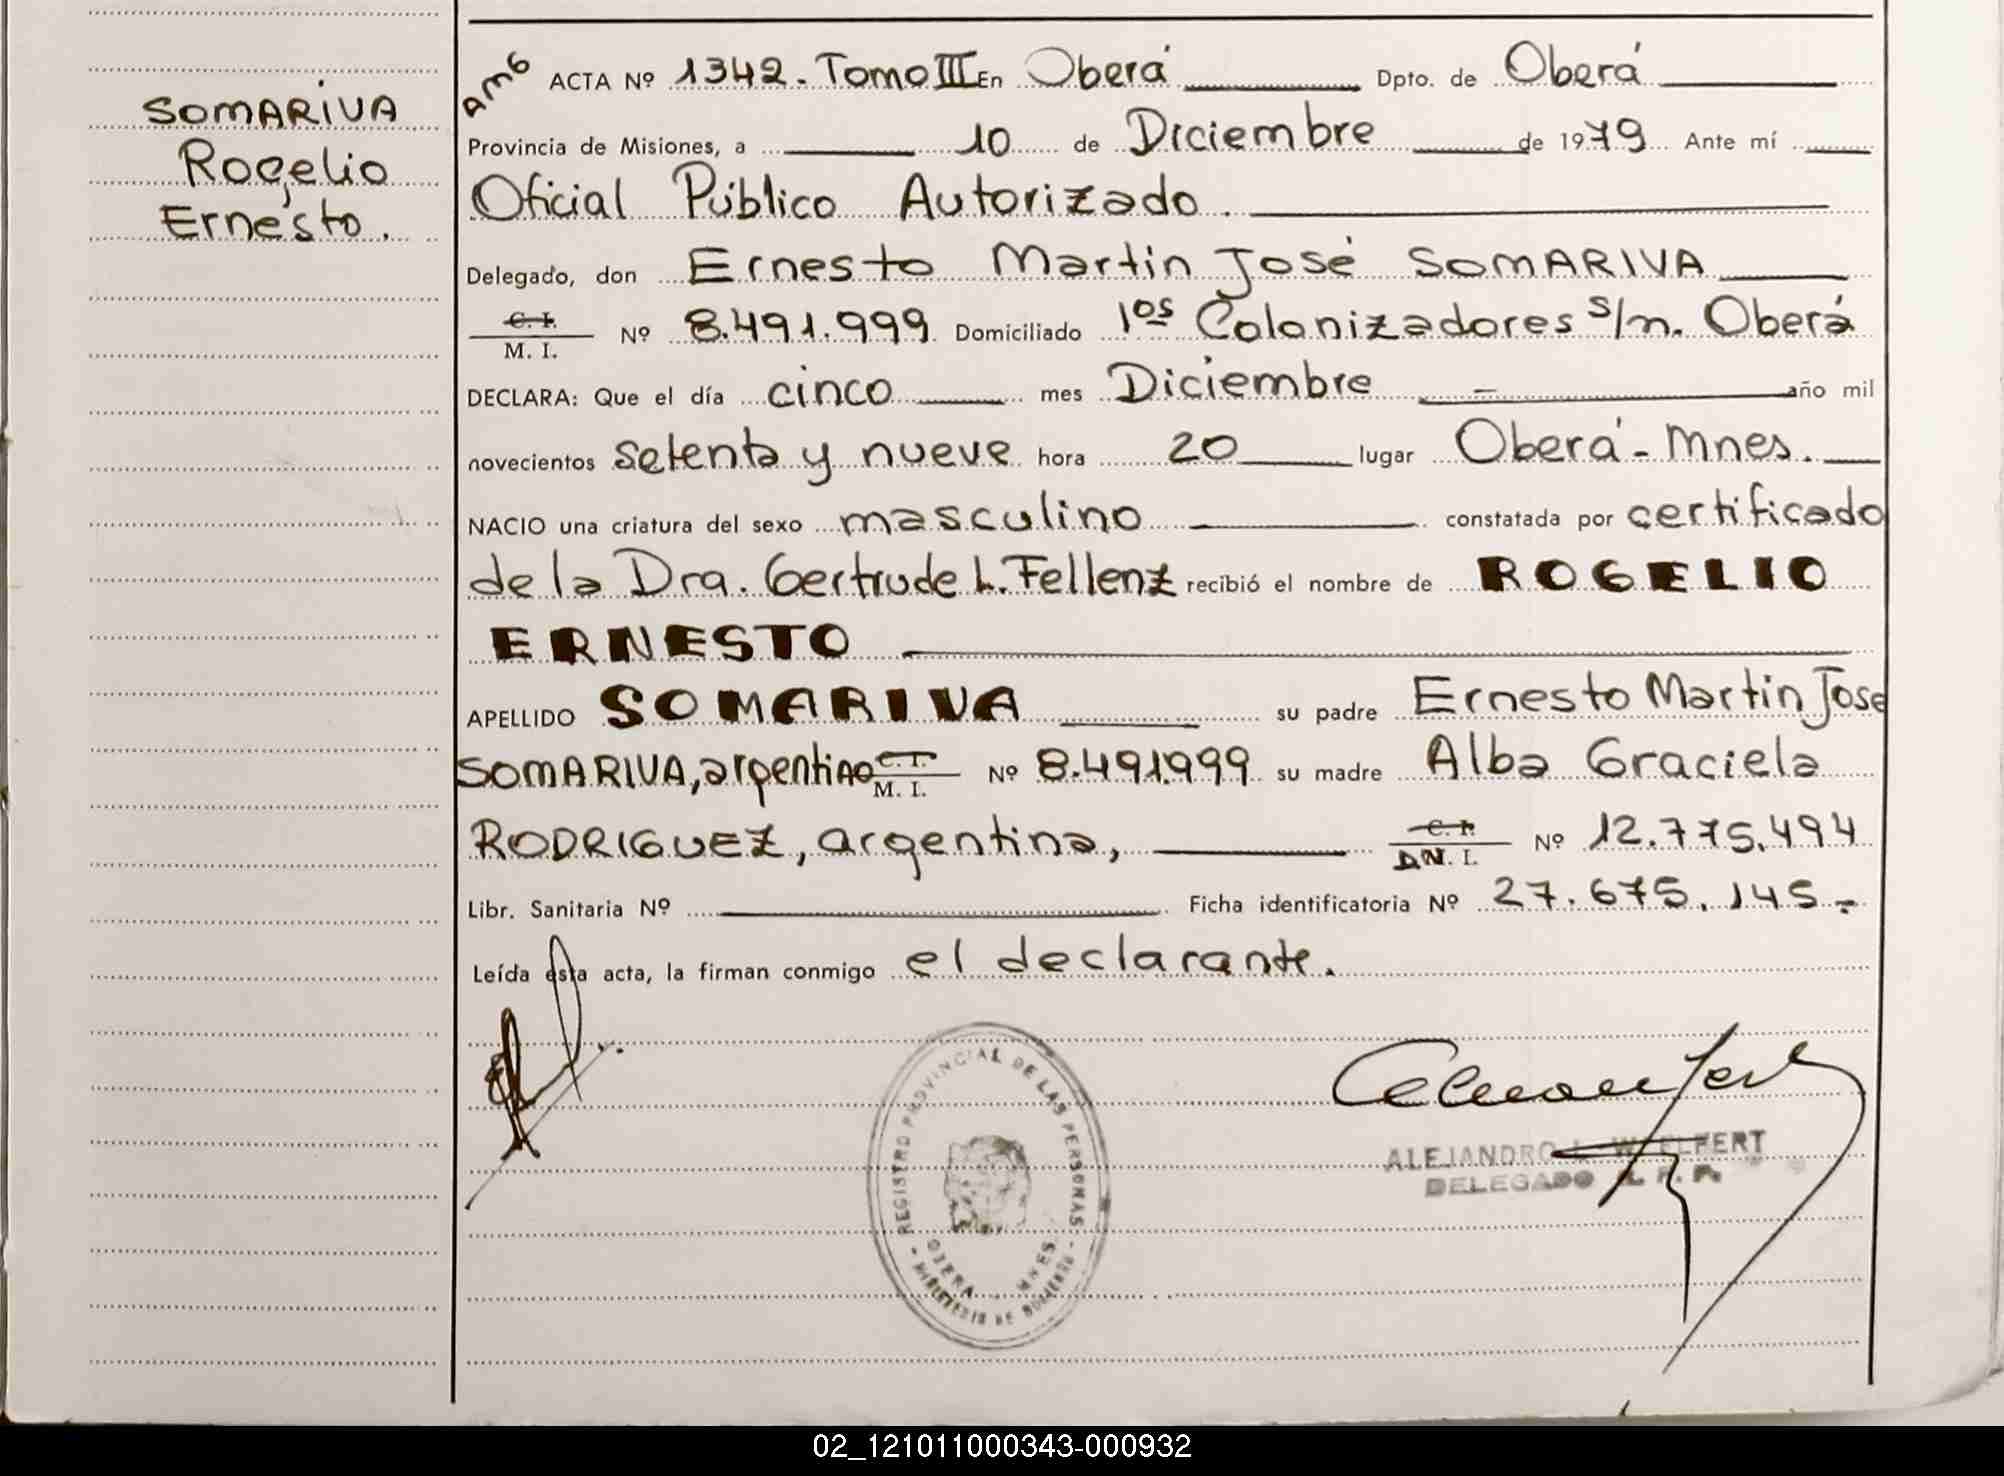 SOMARIVA
Rogelio
Ernesto.
AMG ACTA Nº 1342. Tomo III En Oberá Dpto. de Oberá
Provincia de Misiones, a 10 de Diciembre de 1979 Ante mí
Oficial Público Autorizado.
Delegado, don Ernesto Martin José SOMARIVA
C. I.
M. I. Nº 8.491.999 Domiciliado 1os Colonizadores s/n. Oberá
DECLARA: Que el día cinco mes Diciembre año mil
novecientos setenta y nueve hora 20 lugar Oberá - Mnes.
NACIO una criatura del sexo masculino constatada por certificado
de la Dra. Gertrude L. Fellenz recibió el nombre de ROGELIO
ERNESTO
APELLIDO SOMARIVA su padre Ernesto Martin Jose
SOMARIVA, argentino C. I.
M. I. Nº 8.491.999 su madre Alba Graciela
RODRIGUEZ, argentina, C. I.
D.N. I. Nº 12.775.494
Libr. Sanitaria Nº Ficha identificatoria Nº 27.675.145.-
Leída esta acta, la firman conmigo el declarante.
REGISTRO PROVINCIAL DE LAS PERSONAS
OBERA - MNES.
MINISTERIO DE GOBIERNO
ALEJANDRO
DELEGADO R. P. P.
02_121011000343-000932